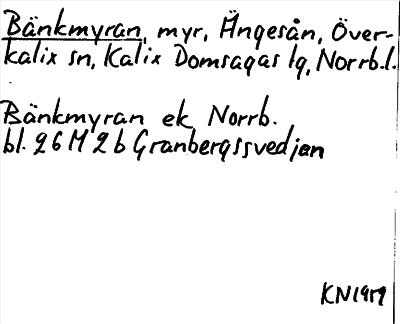 Bänkmyran, myr, Ängesån, Över-
kalix sn, Kalix Domsagas lg, Norrb.l.
Bänkmyran ek Norrb.
bl. 26 M 2 b Granbergssvedjan